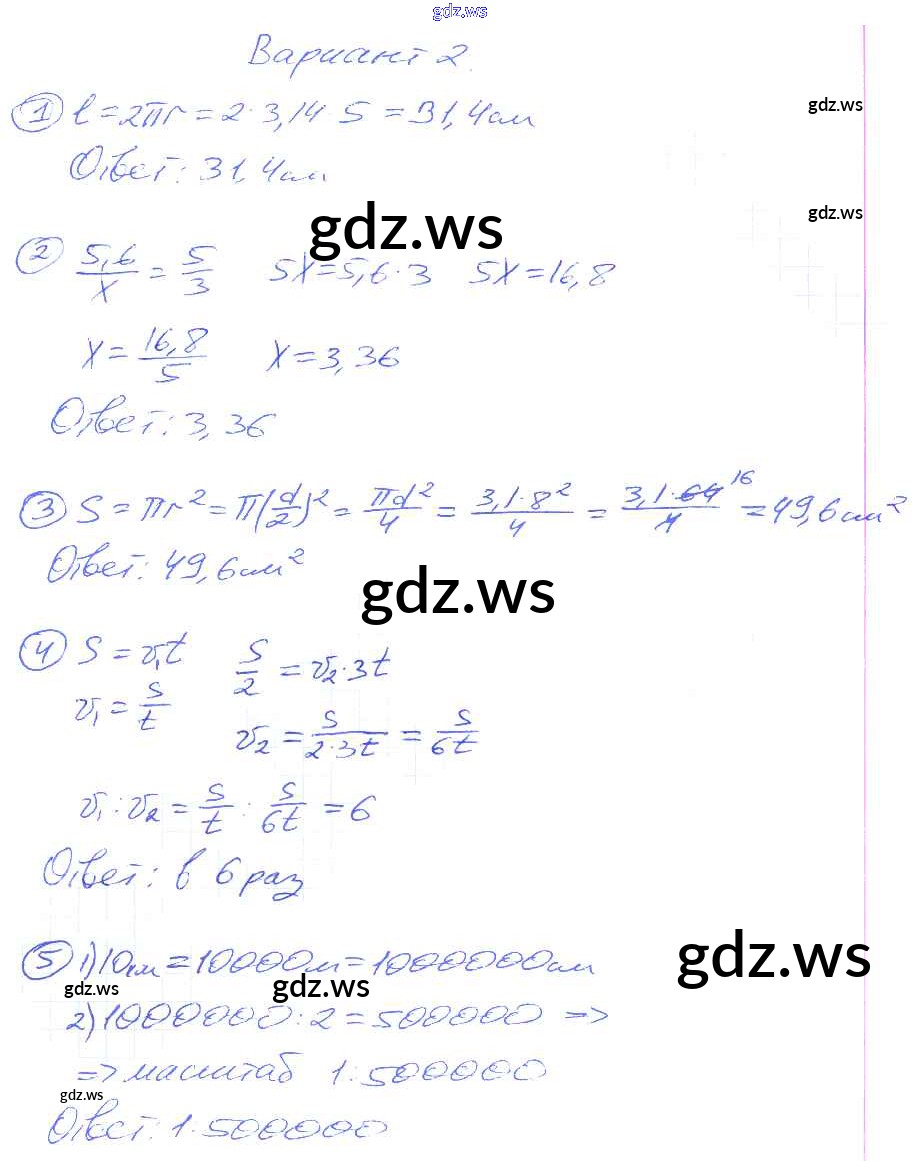 gdz.ws
Вариант 2.
① l = 2πr = 2·3,14·5 = 31,4см
gdz.ws
Ответ: 31,4см
gdz.ws
gdz.ws
② 5,6/x = 5/3 5x = 5,6·3 5x = 16,8
x = 16,8/5 x = 3,36
Ответ: 3,36
③ S = πr² = π(d/2)² = πd²/4 = 3,1·8²/4 = 3,1·64/4 16 = 49,6см²
Ответ: 49,6см²
gdz.ws
④ S = v₁t S/2 = v₂·3t
v₁ = S/t v₂ = S/2·3t = S/6t
v₁ : v₂ = S/t : S/6t = 6
Ответ: в 6 раз
⑤ 1) 10км = 10000м = 1000000см
gdz.ws
gdz.ws
gdz.ws
2) 1000000 : 2 = 500000 =>
=> масштаб 1:500000
gdz.ws
Ответ: 1:500000